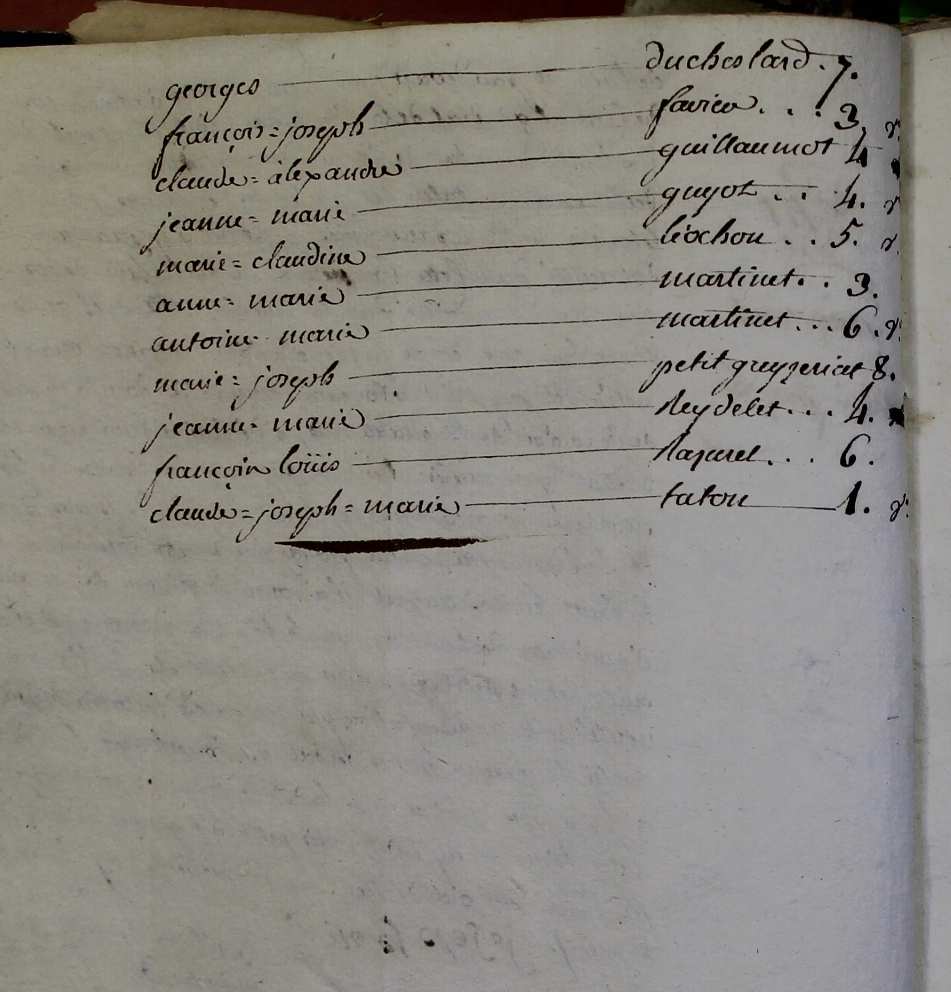 georges ducheslard. 7.
françois=joseph favier... 3.
claude=aléxandre guillaumot 4
jeanne=marie guyot... 4.
marie=claudine liochou.. 5.
anne=marie martinet.. 3.
antoine marie martinet... 6.
marie=joseph petit greyzeriat 8.
jeanne=marie Reydelet... 4.
françois loüis Razurel... 6.
claude=joseph=marie tatou 1.